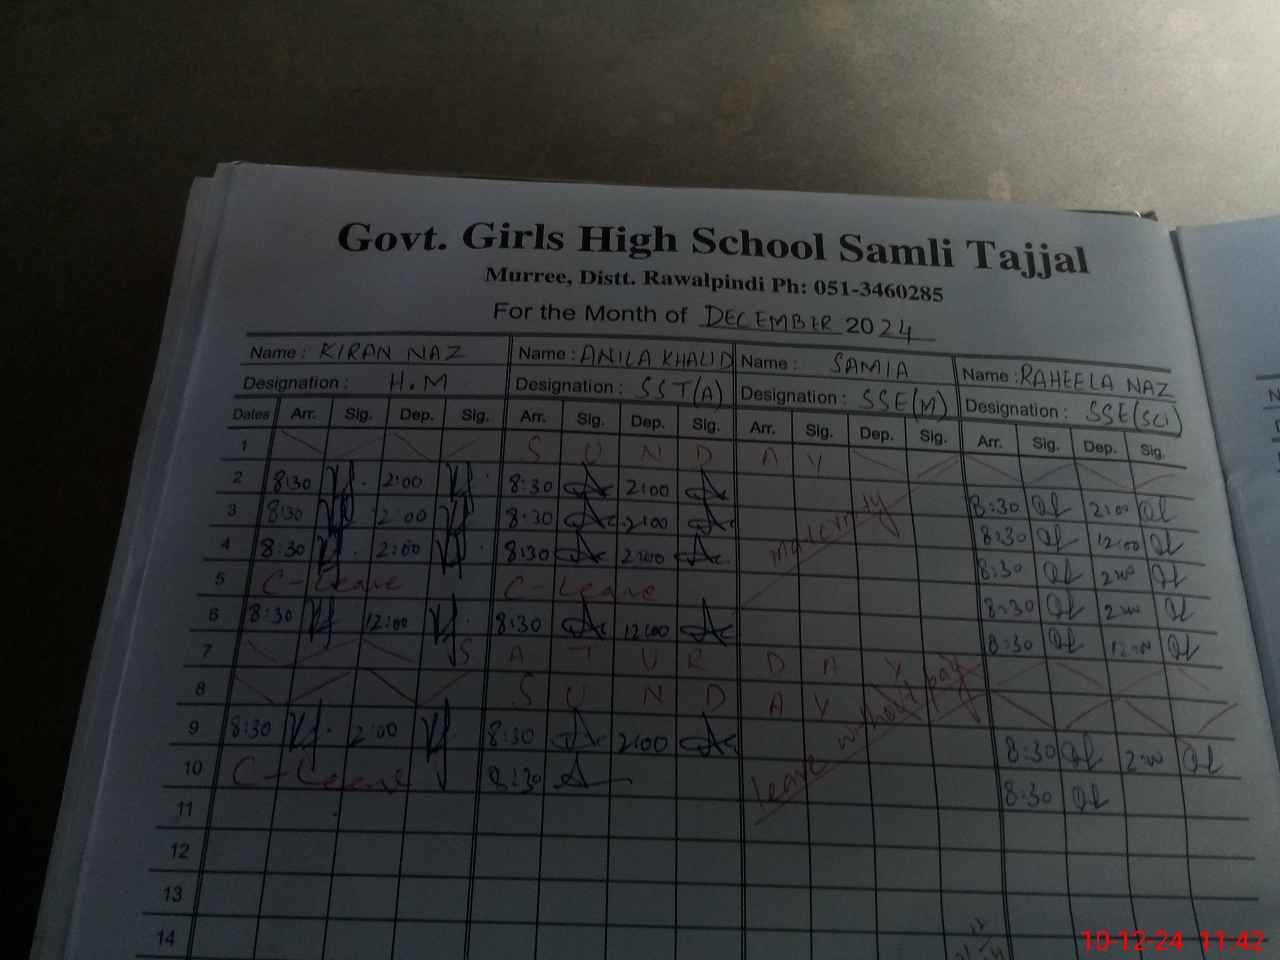 Govt. Girls High School Samli Tajjal
Murree, Distt. Rawalpindi Ph: 051-3460285
For the Month of DECEMBER 2024
Name : KIRAN NAZ Name : ANILA KHALID Name : SAMIA Name : RAHEELA NAZ
Designation : H.M Designation : SST(A) Designation : SSE(M) Designation : SSE(SCI)
Dates Arr. Sig. Dep. Sig. Arr. Sig. Dep. Sig. Arr. Sig. Dep. Sig. Arr. Sig. Dep. Sig.
1 S U N D A Y
2 8:30 2:00 8:30 2:00 8:30 2:00
3 8:30 2:00 8:30 2:00 maternity 8:30 12:00
4 8:30 2:00 8:30 2:00 8:30 2:00
5 C-Leave C-Leave 8:30 2:00
6 8:30 12:00 8:30 12:00 8:30 12:00
7 S A T U R D A Y
8 S U N D A Y
9 8:30 2:00 8:30 2:00 leave without pay 8:30 2:00
10 C-Leave 8:30 8:30
11
12
13
14
10-12-24 11:42